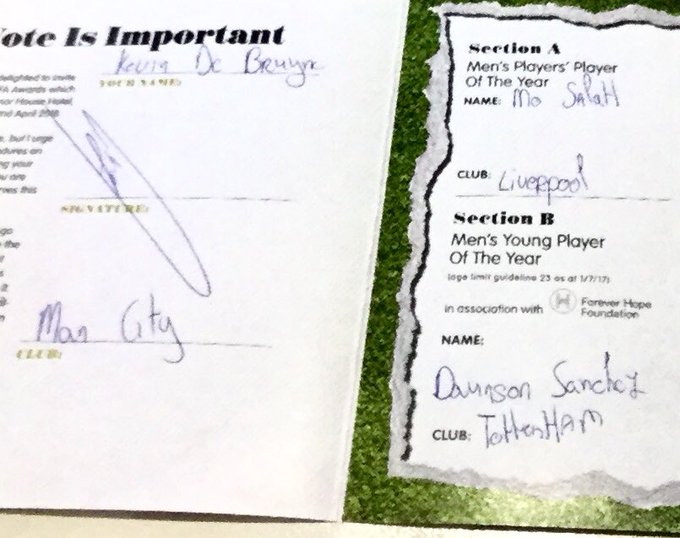 ote Is Important
Kevin De Bruyne
YOUR NAME:
delighted to invite
FA Awards which
nor House Hotel,
nd April 2018
, but I urge
dures on
ng your
u are
rves this
SIGNATURE:
go
the
Man City
CLUB:
Section A
Men's Players' Player
Of The Year
NAME: Mo Salah
CLUB: Liverpool
Section B
Men's Young Player
Of The Year
(age limit guideline 23 as at 1/7/17)
in association with Forever Hope
Foundation
NAME:
Daunson Sanchez
CLUB: TottenHAM